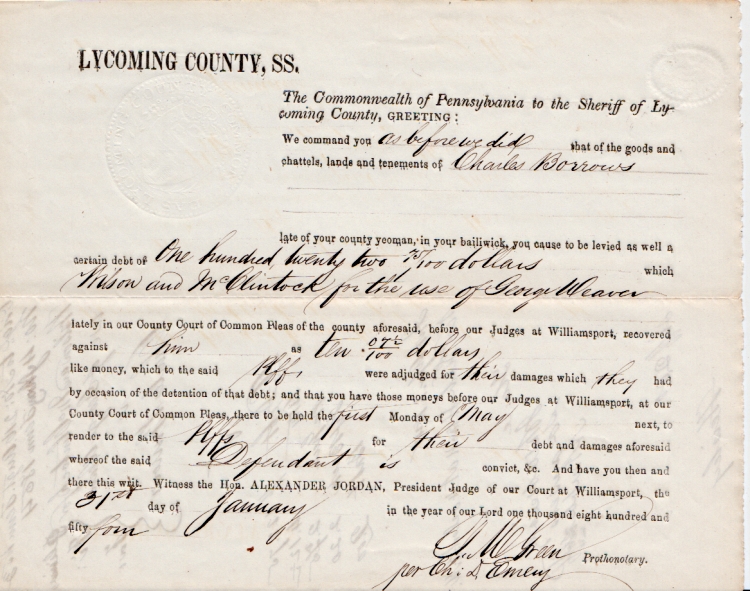 LYCOMING COUNTY, SS.
The Commonwealth of Pennsylvania to the Sheriff of Ly-
coming County, GREETING:
We command you as before we did that of the goods and
chattels, lands and tenements of Charles Borrows
late of your county yeoman, in your bailiwick, you cause to be levied as well a
certain debt of One hundred twenty two /100 dollars which
Wilson and McClintock for the use of George Weaver
lately in our County Court of Common Pleas of the county aforesaid, before our Judges at Williamsport, recovered
against him as ten /100 dollars
like money, which to the said Plffs were adjudged for their damages which they had
by occasion of the detention of that debt; and that you have those moneys before our Judges at Williamsport, at our
County Court of Common Pleas, there to be held the first Monday of May next, to
render to the said Plffs for their debt and damages aforesaid
whereof the said Defendant is convict, &c. And have you then and
there this writ. Witness the Hon. ALEXANDER JORDAN, President Judge of our Court at Williamsport, the
31st day of January in the year of our Lord one thousand eight hundred and
fifty four
Prothonotary.
per Ch: D. Emery